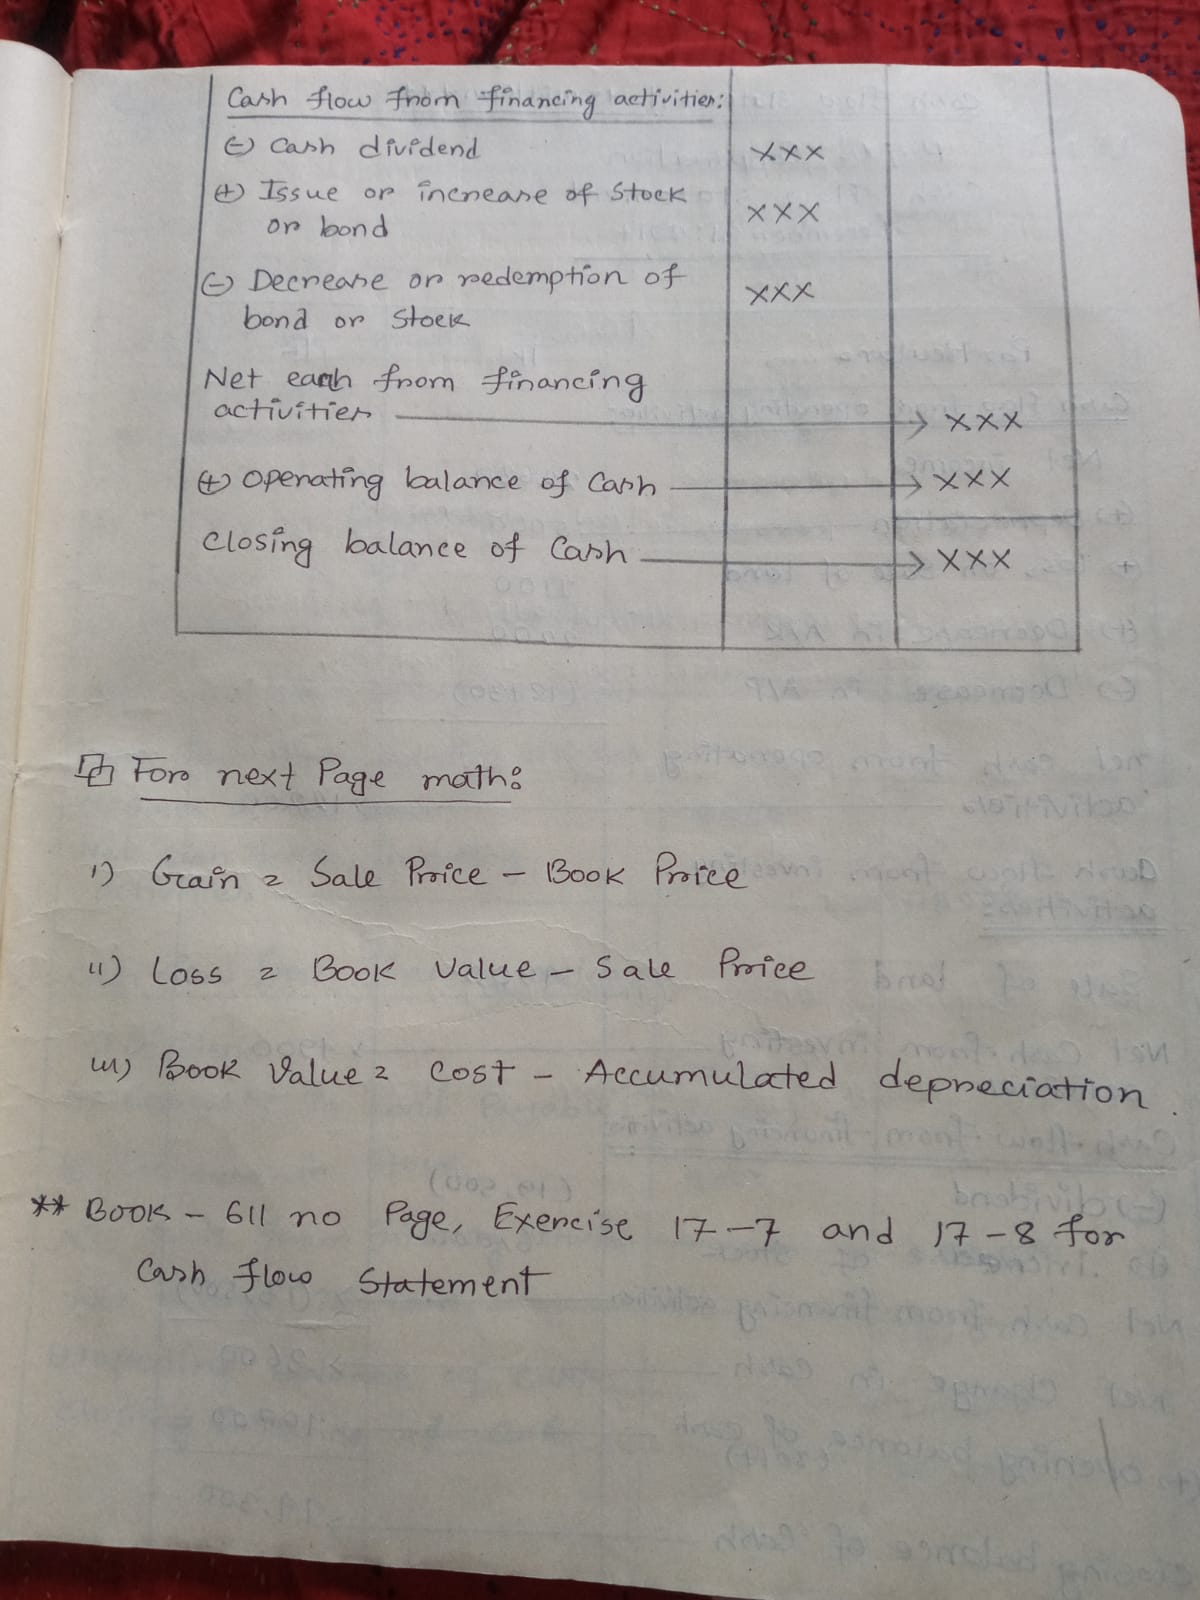 Cash flow from financing activities:
(-) Cash dividend xxx
(+) Issue or increase of Stock xxx
or bond
(-) Decrease or redemption of xxx
bond or Stock
Net cash from financing
activities → xxx
(+) Operating balance of Cash → xxx
Closing balance of Cash → xxx
For next Page math:
i) Gain = Sale Price - Book Price
ii) Loss = Book Value - Sale Price
iii) Book Value = Cost - Accumulated depreciation.
** Book - 611 no Page, Exercise 17-7 and 17-8 for
Cash flow Statement